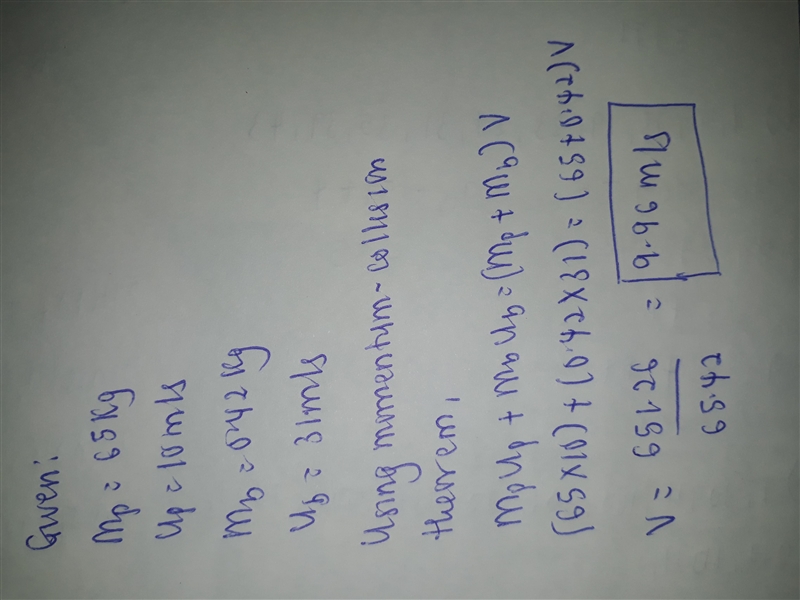 Given:
Mp = 65Kg
Up = 10m/s
Mb = 042 Kg
Ub = 31m/s
Using momentum-collision
theorem,
MpUp + MbUb = (Mp + Mb) V
(65x10) + (0.42x31) = (65+0.42)V
V = 651.26 = 9.96 m/s
65.42